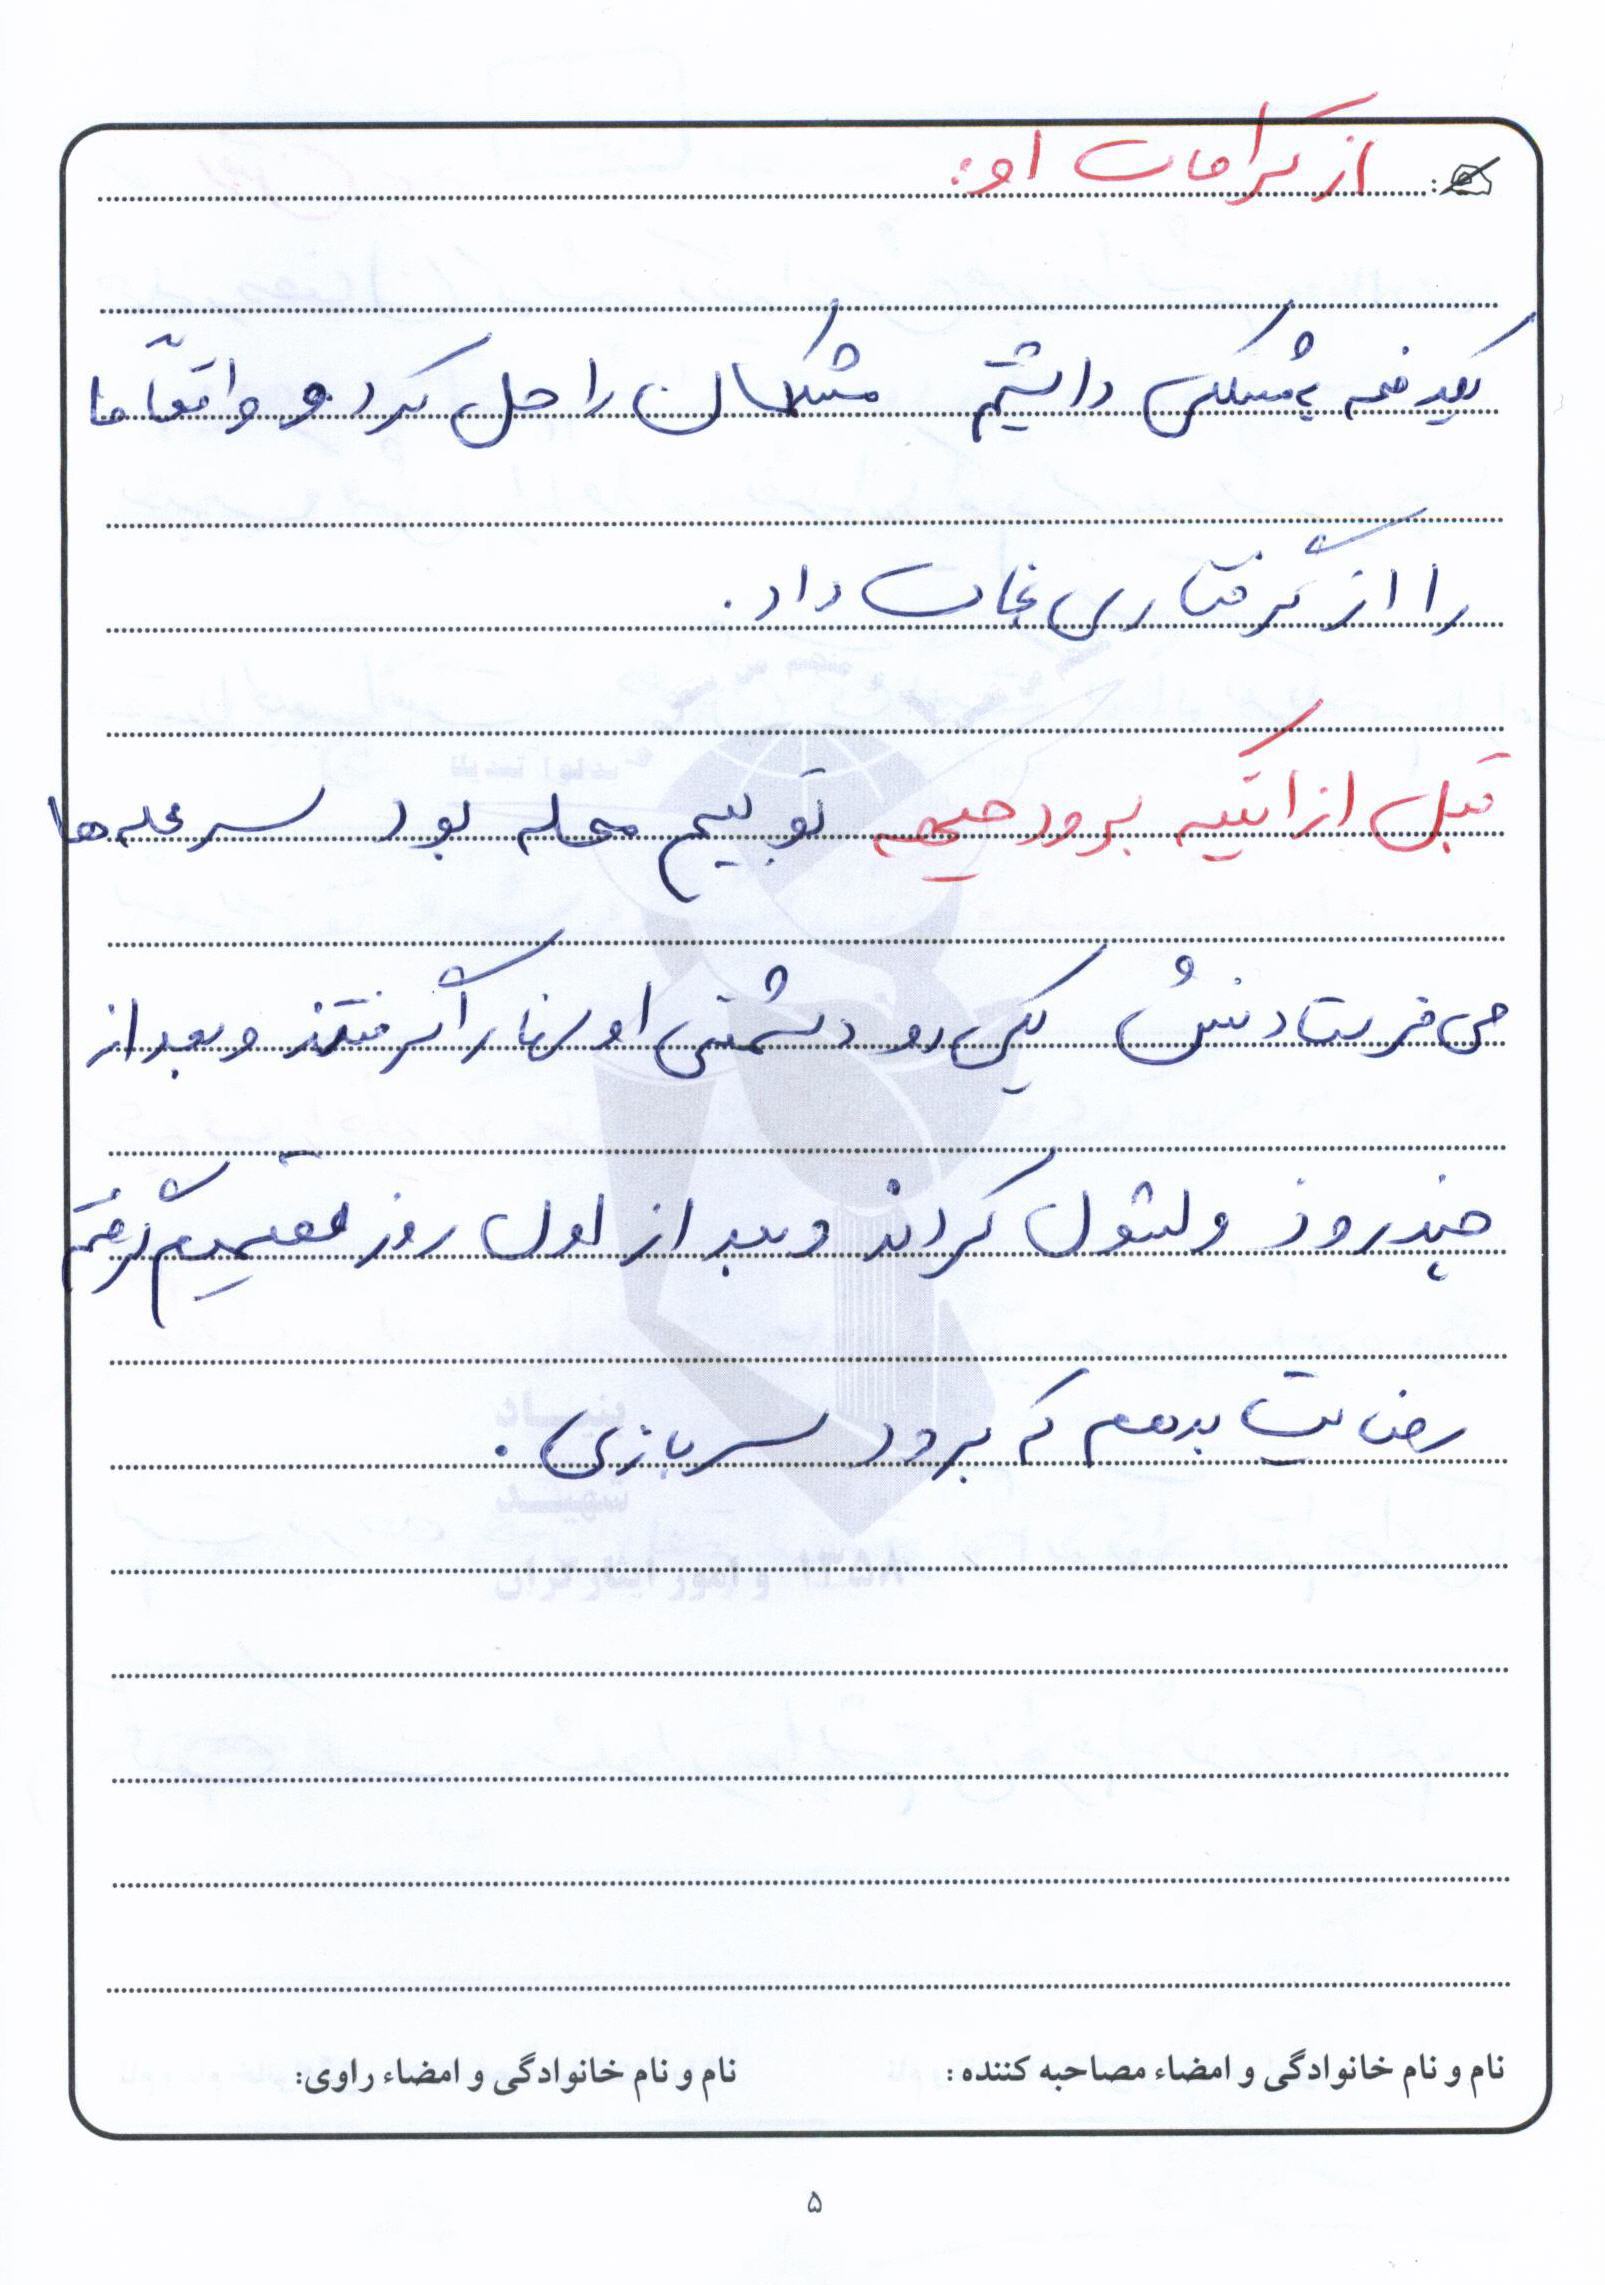 از کرامات او:
یکدفعه یه مشکلی داشتیم مشکلمان را حل کرد و واقعاً ما
را از گرفتاری نجات داد.
قبل از اینکه برود جبهه تو بسیج محله بود سر محله ها
می فرستادنش یکی رو دشمنی اونها را گرفتند و بعد از
چند روز ولشون کردند و بعد از اول روز تصمیم گرفتم
رضایت بدهم که برود سربازی.
نام و نام خانوادگی و امضاء مصاحبه کننده: نام و نام خانوادگی و امضاء راوی:
۵